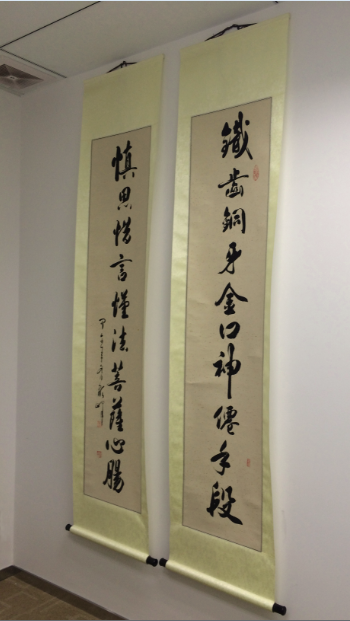 鐵齒銅牙金口神僊手段
慎思惜言懂法菩薩心腸